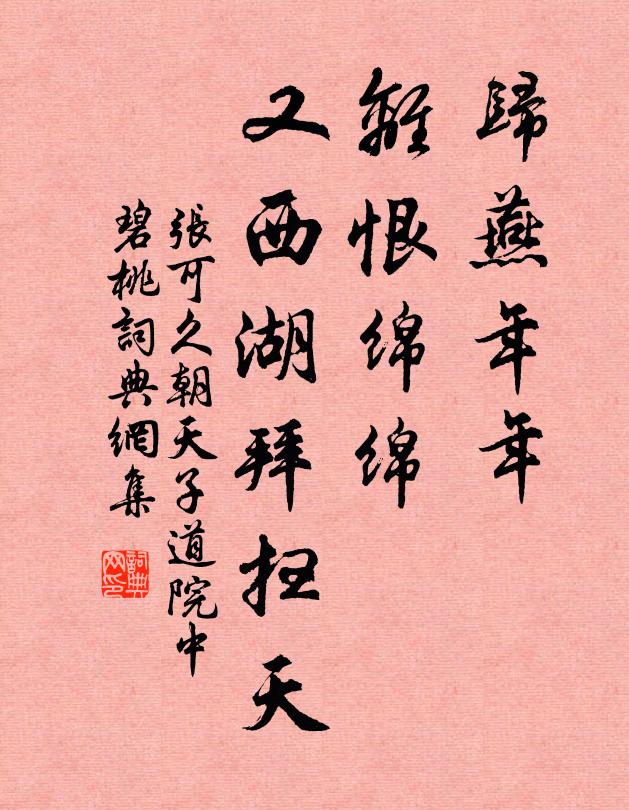 歸燕年年
離恨绵绵
又西湖拜扫天
張可久朝天子道院中
碧桃詞典網集
詞典网印